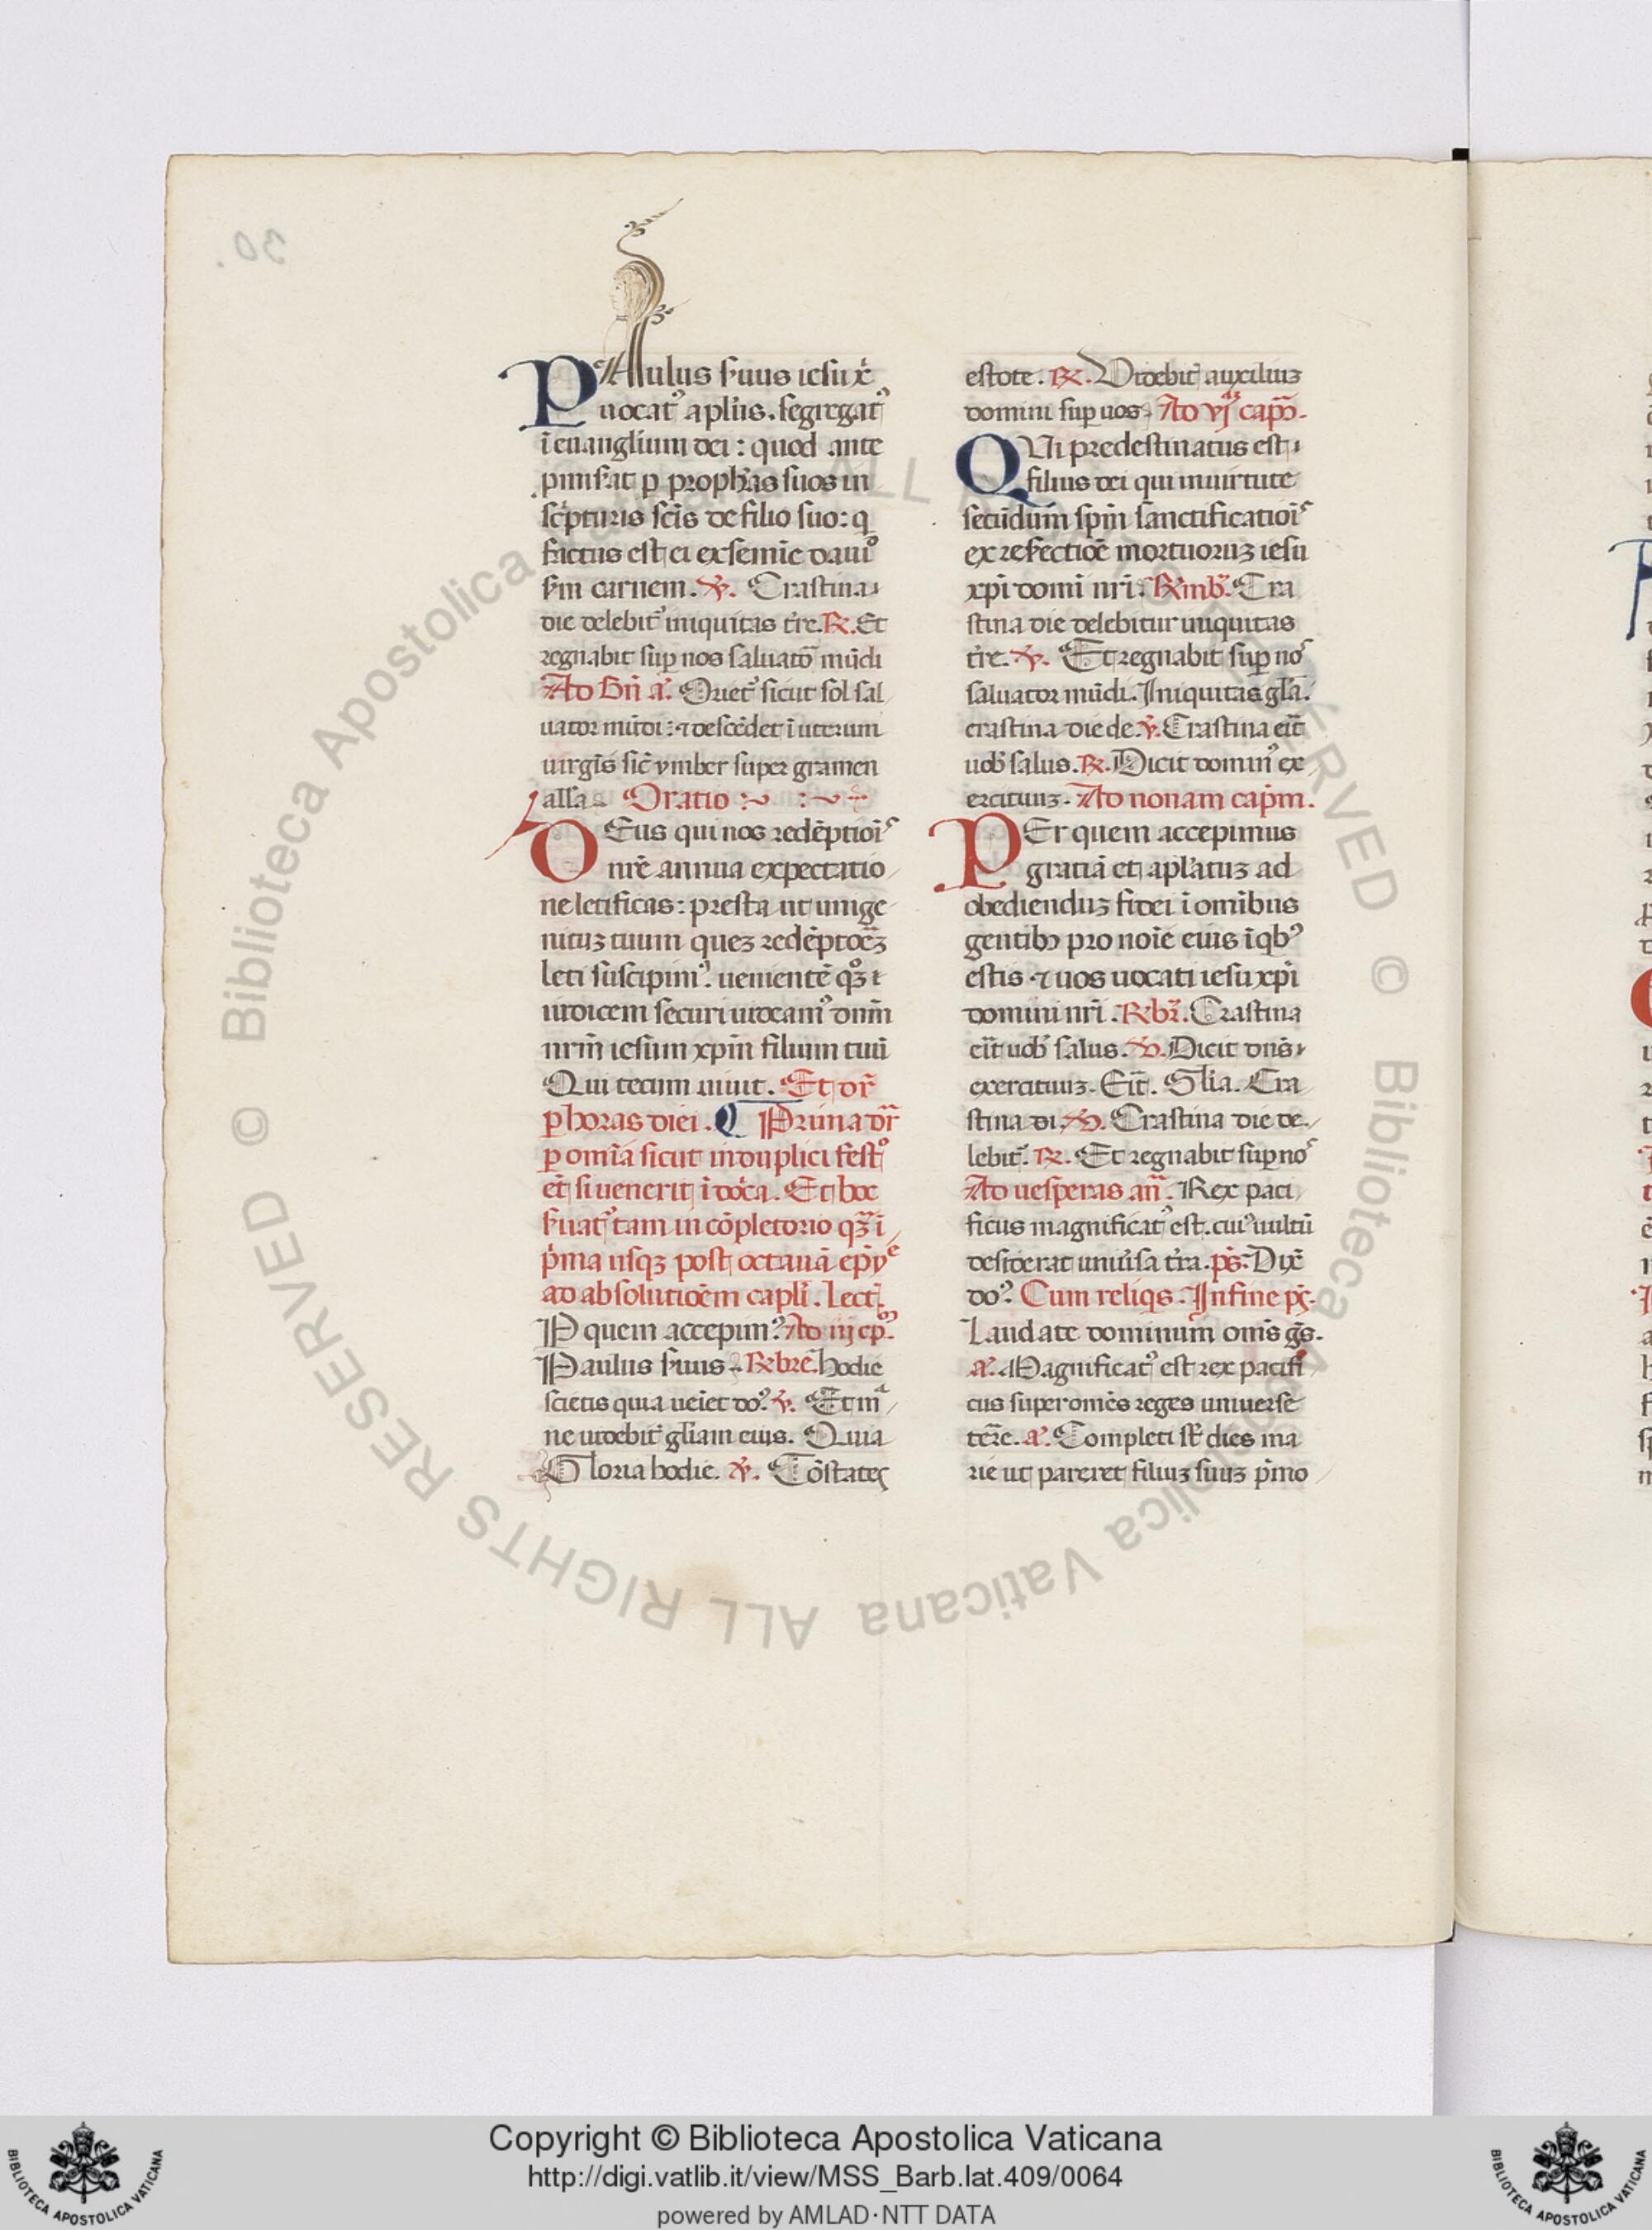 PAulus ẜuus iesu xр̄i
uocatꝰ aplus. segregatꝰ
ī euanglium dei: quod ante
pmiẜat p prophās suos in
sc̄pturis sc̄is de filio suo: q
factus est ei ex semīe dauid
ẜm carnem. ꝟ. Crastina
die delebitᷣ iniquitas tr̄e. ℞. Et
regnabit sup nos saluator mūdi
Ad bn̄ a. Orietᷣ sicut sol sal
uator mūdi: ⁊ descēdet ī uterum
uirgīs sic̄ ymber super gramen
alla. Oratio
DEus qui nos redēptiōis
nr̄e annua expectatio
ne letificas: presta ut unige
nituꝫ tuum queꝫ redēptorēꝫ
leti suscipimꝰ. uenientē qꝫ
iudicem securi uideamꝰ dnm̄
nrm̄ iesum xpm̄ filium tuū
Qui tecum uiuit. Et dr̄
p horas diei. ¶ Prima dr̄
p omīa sicut in duplici festo
et̄ si uenerit ī dōica. Et hoc
ẜuatᷣ tam in cōpletorio qꝫ ī
pͥma usqꝫ post octauā epȳe
ad absolutiōem capli. Lect.
P quem accepimꝰ. Ad iij cp̄.
Paulus ẜuus. ℞ bre. hodie
scietis quia ueīet do. ꝟ. Et ma
ne uidebit gliam eius. Quia
Gloria hodie. ꝟ. Cōstates
estote. ℞. Videbit auxiliuꝫ
domini sup uos. Ad vj capm.
QUi predestinatus est
filius dei qui in uirtute
secūdum spm̄ sanctificatiōis
ex reẜectiōe mortuoruꝫ iesu
xpi domī nr̄i. ℞ mb. Cra
stina die delebitur iniquitas
tr̄e. ꝟ. Et regnabit sup nos
saluator mūdi. Iniquitas gla.
crastina die de. ꝟ. Crastina eīt
uob salus. ℞. Dicit dominꝰ ex
ercituuꝫ. Ad nonam capm.
PEr quem accepimus
gratiā et aplatuꝫ ad
obediendūꝫ fidei ī omībus
gentibꝫ pro noīe eius ī qbꝰ
estis ⁊ uos uocati iesu xpi
domini nr̄i. ℞ br. Crastina
eīt uob salus. ꝟ. Dicit dn̄s
exercituuꝫ. Eīt. Glia. Cra
stina di. ꝟ. Crastina die de
lebitᷣ. ℞. Et regnabit sup nos
Ad uesperas an̄. Rex paci
ficus magnificatꝰ est. cuiꝰ uultū
desiderat uniuẜa tr̄a. ps. Dix̄
do. Cum reliqs. In fine ps.
Laudate dominum om̄s gs.
a. Magnificatꝰ est rex pacifi
cus super omēs reges uniuerse
terre. a. Completi st dies ma
rie ut pareret filiuꝫ suuꝫ pͥmo
30.
© Biblioteca Apostolica Vaticana ALL RIGHTS RESERVED © Biblioteca Apostolica Vaticana ALL RIGHTS RESERVED
Copyright © Biblioteca Apostolica Vaticana
http://digi.vatlib.it/view/MSS_Barb.lat.409/0064
powered by AMLAD·NTT DATA
BIBLIOTECA APOSTOLICA VATICANA
BIBLIOTECA APOSTOLICA VATICANA